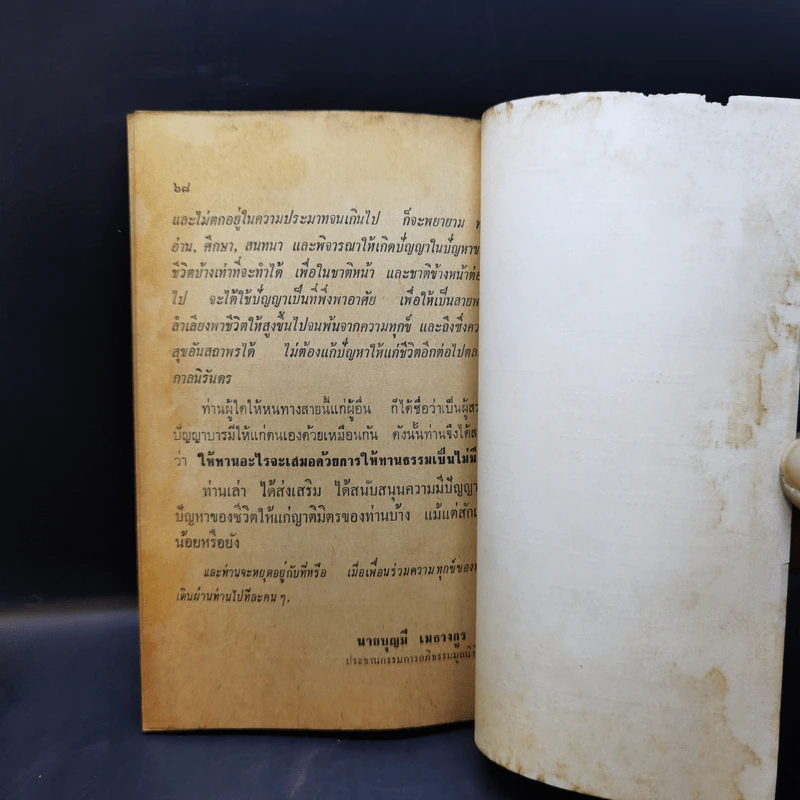 ๖๘
และไม่ตกอยู่ในความประมาทจนเกินไป ก็จะพยายาม
อ่าน, ศึกษา, สนทนา และพิจารณาให้เกิดปัญญาในปัญหา
ชีวิตบ้างเท่าที่จะทำได้ เพื่อในชาติหน้า และชาติข้างหน้าต่อ
ไป จะได้ใช้ปัญญาเป็นที่พึ่งพาอาศัย เพื่อให้เป็นสาย
ลำเลียงพาชีวิตให้สูงขึ้นไปจนพ้นจากความทุกข์ และถึงซึ่ง
สุขอันสถาพรได้ ไม่ต้องแก้ปัญหาให้แก่ชีวิตอีกต่อไป
กาลนิรันดร
ท่านผู้ใดให้หนทางสายนี้แก่ผู้อื่น ก็ได้ชื่อว่าเป็น
ปัญญาบารมีให้แก่ตนเองด้วยเหมือนกัน ดังนั้นท่านจึงได้
ว่า ให้ทานอะไรจะเสมอด้วยการให้ทานธรรมเป็นไม่มี
ท่านเล่า ได้ส่งเสริม ได้สนับสนุนความมีปัญญา
ปัญหาของชีวิตให้แก่ญาติมิตรของท่านบ้าง แม้แต่
น้อยหรือยัง
และท่านจะหยุดอยู่กับที่หรือ เมื่อเพื่อนร่วมความทุกข์ของ
เดินผ่านท่านไปทีละคน ๆ.
นายบุญมี เมธางกูร
ประธานกรรมการอภิธรรมมูลนิธิ